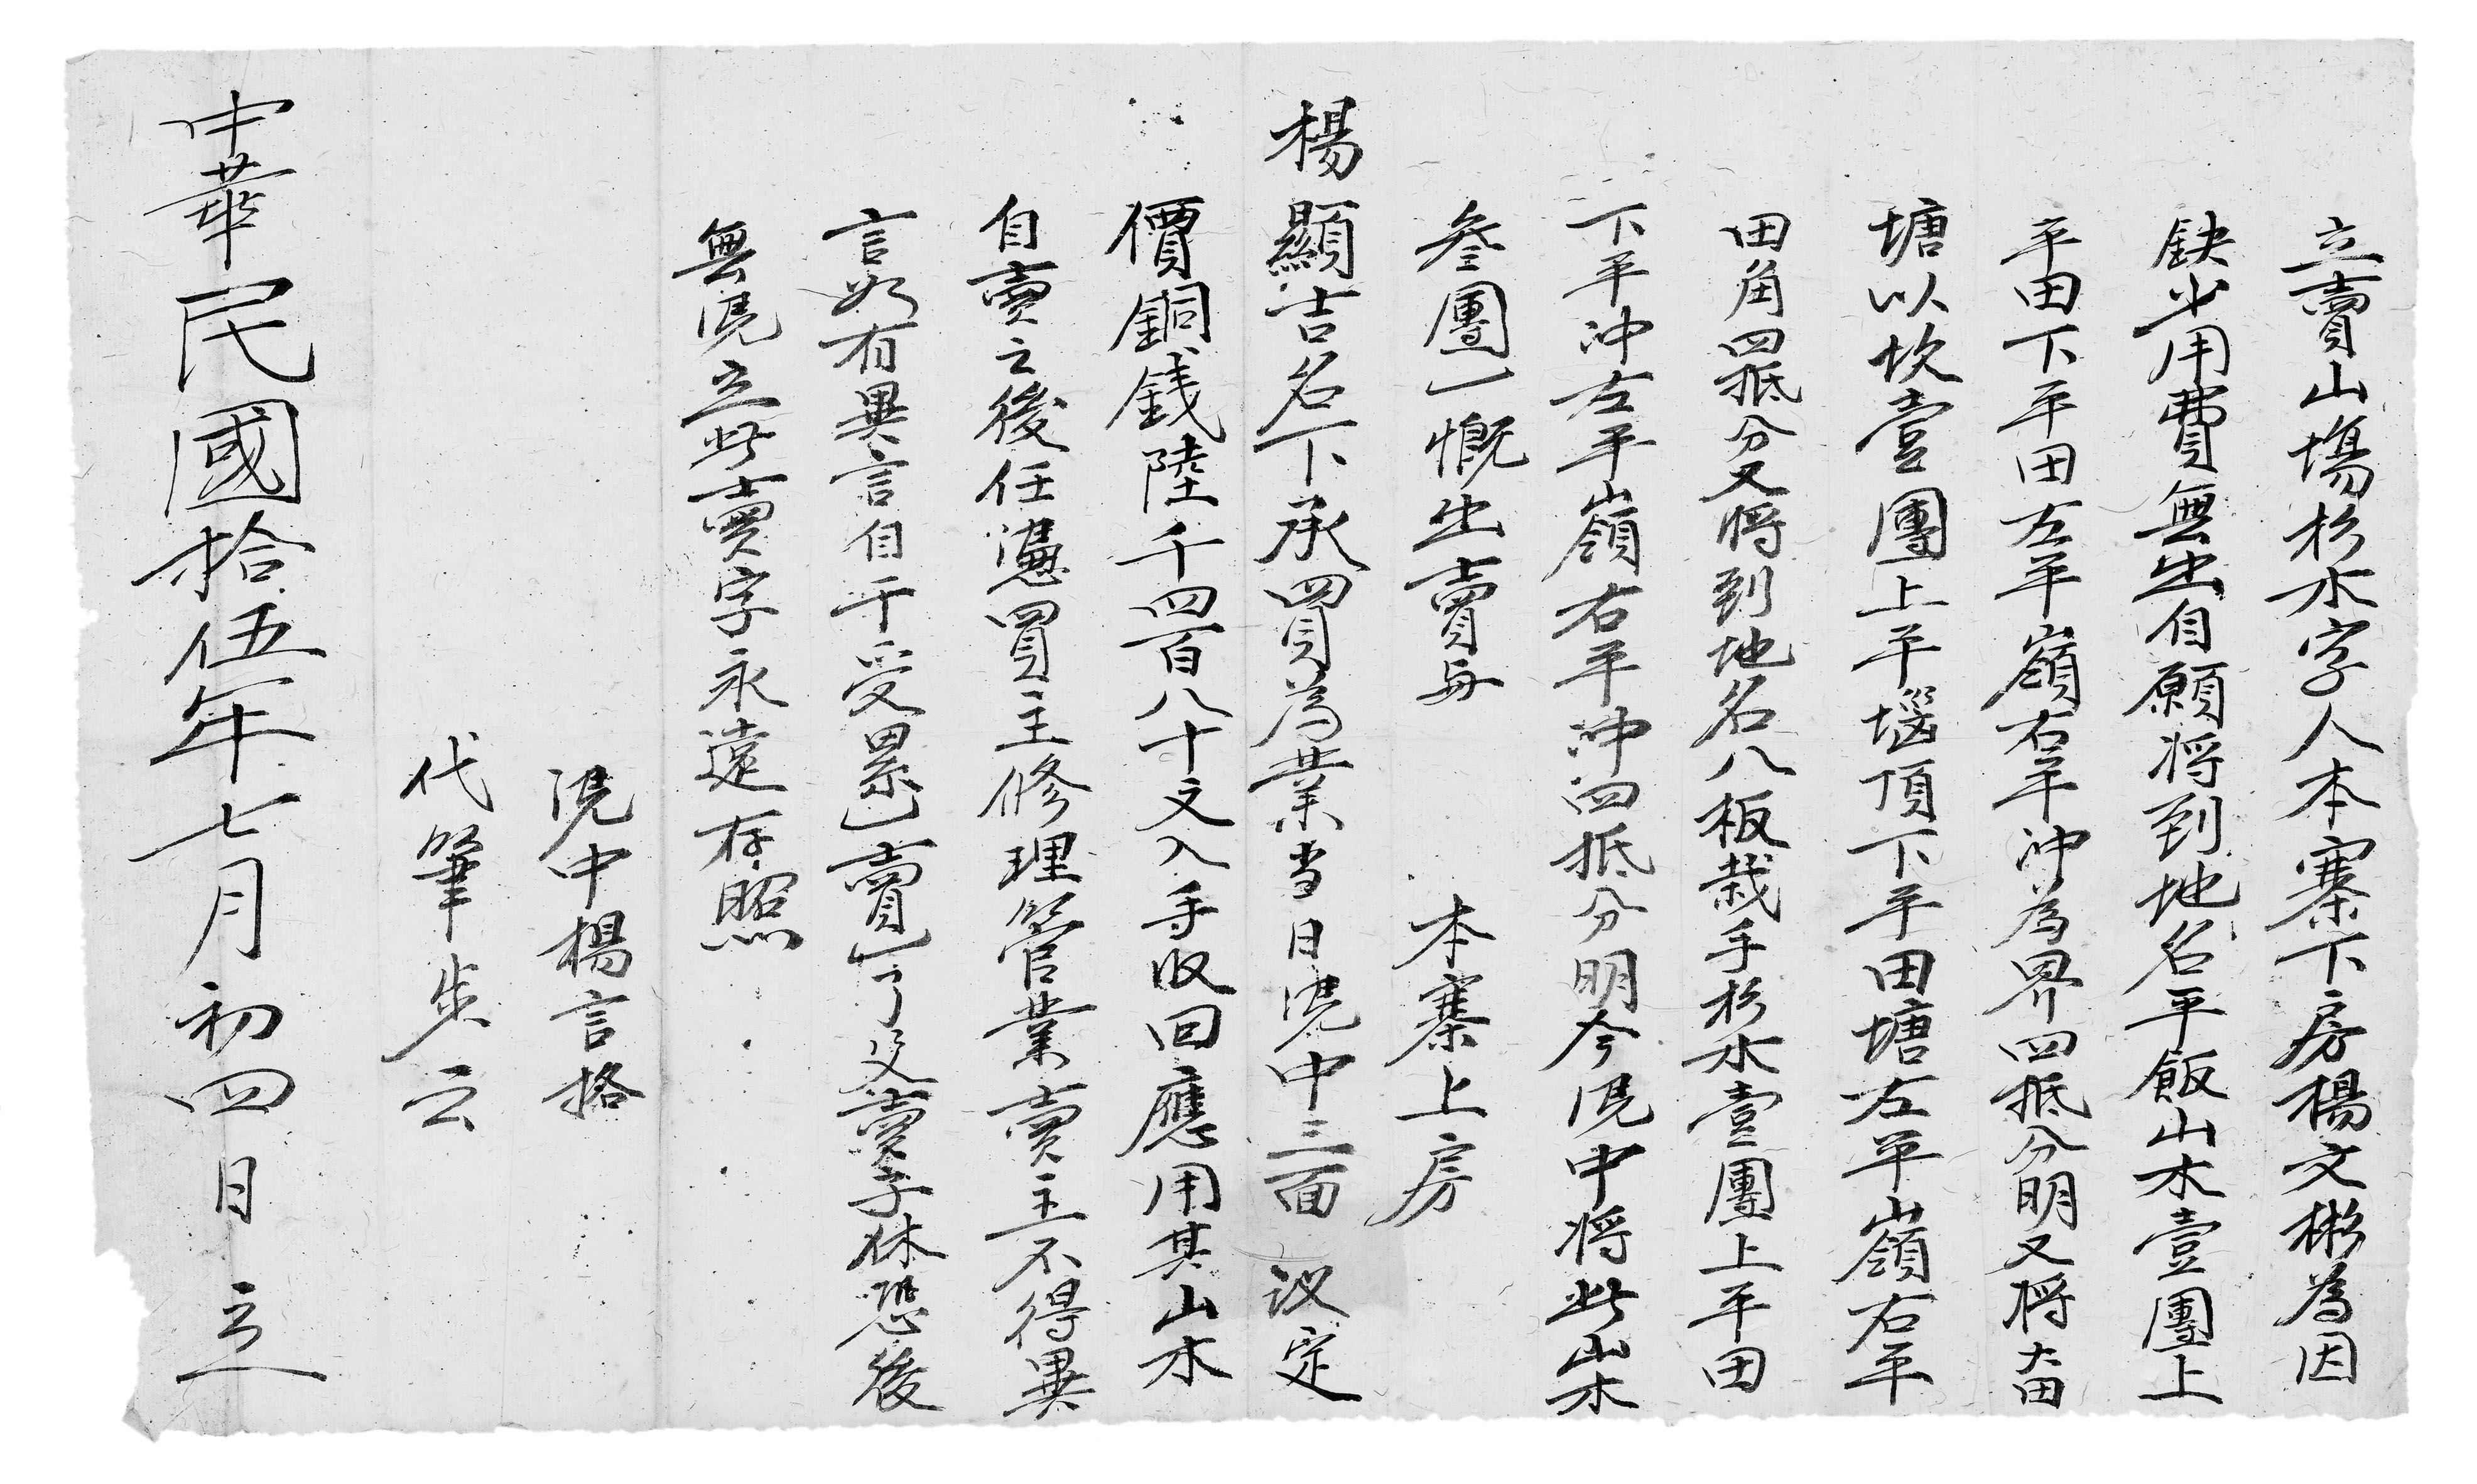 立賣山塲杉木字人本寨下房楊文彬為因
缺少用費無出自願将到地名平飯山木壹團上
平田下平田左平嶺右平冲為界四抵分明又将大田
塘以坎壹團上平堖頂下平田塘左平嶺右平
田角四抵分又將到地名八板栽手杉木壹團上平田
下平冲左平嶺右平冲四抵分明今凴中将此山木
叁團一慨出賣與本寨上房
楊顯吉名下承買為業当日凴中三面议定
價銅錢陸千四百八十文入手收回應用其山木
自賣之後任憑買主修理管業賣主不得異
言如有異言自干受累一賣一了父賣子休恐後
無凴立此賣字永遠存照
凴中楊言格
代筆步云
中華民國拾伍年七月初四日立